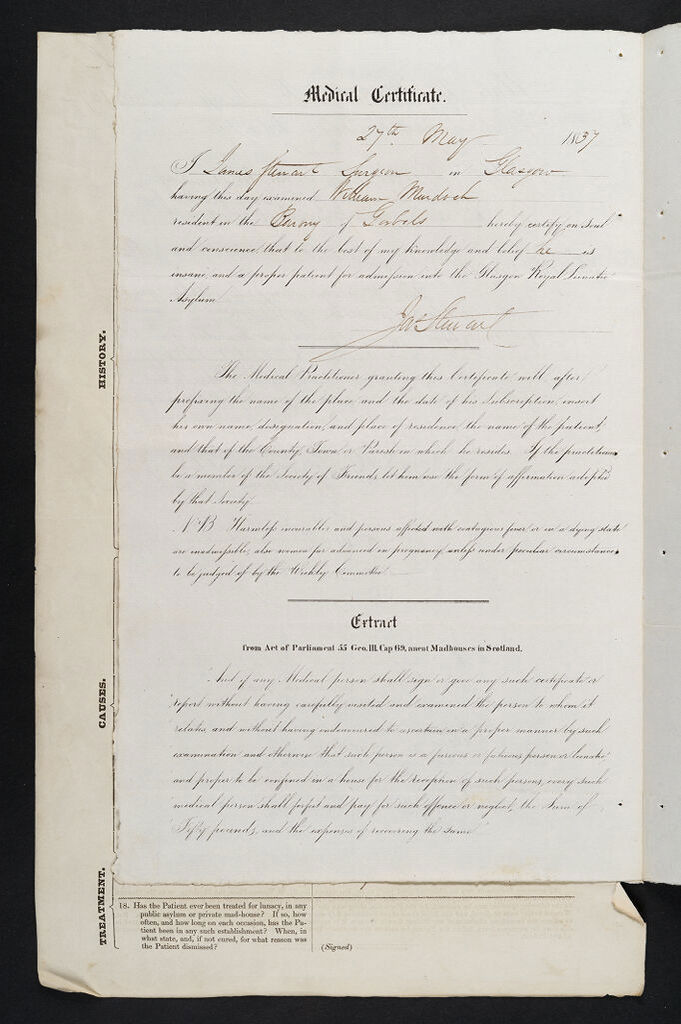 Medical Certificate.
27th May 1837
I James Stewart Surgeon in Glasgow
having this day examined William Murdoch
resident in the Barony of Gorbals hereby certify on soul
and conscience, that to the best of my knowledge and belief he is
insane, and a proper patient for admission into the Glasgow Royal Lunatic
Asylum
Jas Stewart
The Medical Practitioner granting this Certificate will, after
prefixing the name of the place, and the date of his Subscription, insert
his own name, designation, and place of residence, the name of the patient,
and that of the County, Town or Parish in which he resides. If the practitioner
be a member of the Society of Friends, let him use the form of affirmation adopted
by that Society
N.B. Harmless incurables and persons affected with contagious fever or in a dying state
are inadmissible, also women far advanced in pregnancy, unless under peculiar circumstances,
to be judged of by the Weekly Committee
Extract
from Act of Parliament 55 Geo. III. Cap 69, anent Madhouses in Scotland.
And if any Medical person shall sign or give any such certificate or
report without having carefully visited and examined the person to whom it
relates, and without having endeavoured to ascertain in a proper manner by such
examination and otherwise that such person is a furious or fatuous person or lunatic
and proper to be confined in a house for the reception of such persons, every such
medical person shall forfeit and pay for such offence or neglect, the Sum of
Fifty pounds, and the expenses of recovering the same
HISTORY.
CAUSES.
TREATMENT.
18. Has the Patient ever been treated for lunacy, in any
public asylum or private mad-house? If so, how
often, and how long on each occasion, has the Pa-
tient been in any such establishment? When, in
what state, and, if not cured, for what reason was
the Patient dismissed?
(Signed)